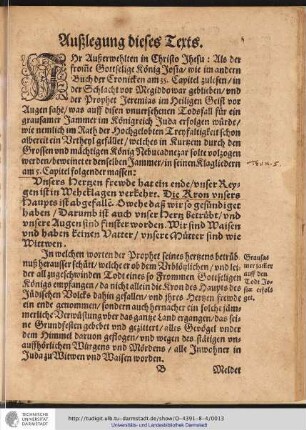 Außlegung dieses Texts.
IHr Außerwehlten in Christo Jhesu: Als der
from̃e Gottselige König Josia, wie im andern
Buch der Cronicken am 35. Capitel zulesen, in
der Schlacht vor Megiddo war geblieben, vnd
der Prophet Jeremias im Heiligen Geist vor
Augen sahe, was auff disen vnuersehenen Todsfall für ein
grausamer Jammer im Königreich Juda erfolgen würde,
wie nemlich im Rath der Hochgelobten Treyfaltigkeit schon
albereit ein Vrtheyl gefället, welchs in Kurtzem durch den
Grossen vnd mächtigen König Nebucadnezar solte volzogen
werden, beweinet er denselben Jammer, in seinen Klagliedern
am 5. Capitel folgender massen:
Vnsers Hertzen frewde hat ein ende, vnser Rey-
gen ist in Wehklagen verkehrt. Die Kron vnsers
Haupts ist abgefallẽ. O wehe daß wir so gesündiget
haben, Darumb ist auch vnser Hertz betrübt, vnd
vnsere Augen sind finster worden. Wir sind Waisen
vnd haben keinen Vatter, vnsere Mütter sind wie
Wittwen.
In welchen worten der Prophet seines hertzens betrüb-
nuß herausser schüt, welche er ob dem
der all zugeschwinden Todt eines so frommen Gottseligen
Königs empfangen, da nicht allein die Kron des Haupts des
Jüdischen Volcks dahin gefallen, vnd jhres Hertzen frewde
ein ende genommen, sondern auch hernacher ein solche jäm-
merliche Verwüstung vber das gantze Land ergangen, das sei-
ne Grundfesten gebebet vnd gezittert, alles Gevögel vnder
dem Himmel daruon geflogen, vnd wegen des stätigen vn-
auffhörlichen Würgens vnd Mördens, alle Inwohner in
Juda zu Witwen vnd Waisen worden.
B
Meldet
Grausa-
mer
auff den
Todt Jo-
sia erfol-
get.
TECHNISCHE
UNIVERSITÄT
DARMSTADT
http://tudigit.ulb.tu-darmstadt.de/show/O-4391-8-4/0013
Universitäts- und Landesbibliothek Darmstadt